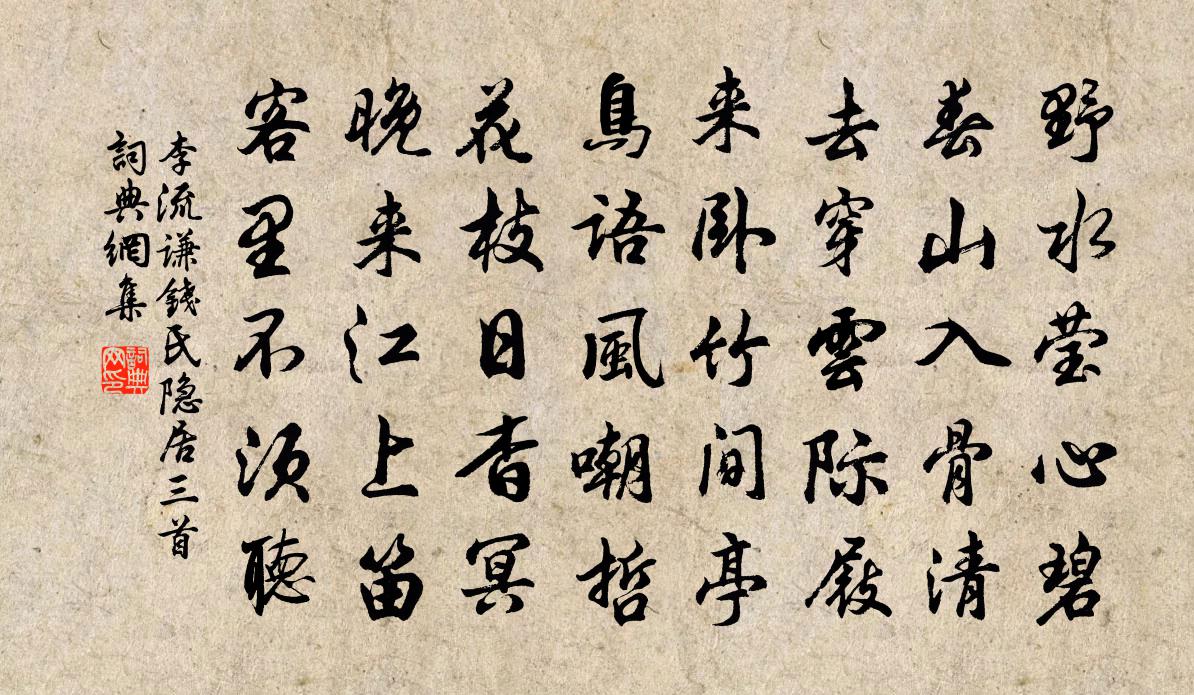 野水莹心碧
春山入骨清
去穿雲际屐
来卧竹间亭
鳥語風嘲哲
花枝日杳冥
晚来江上笛
客里不须聽
李流谦錢氏隐居三首
詞典網集
詞典网印